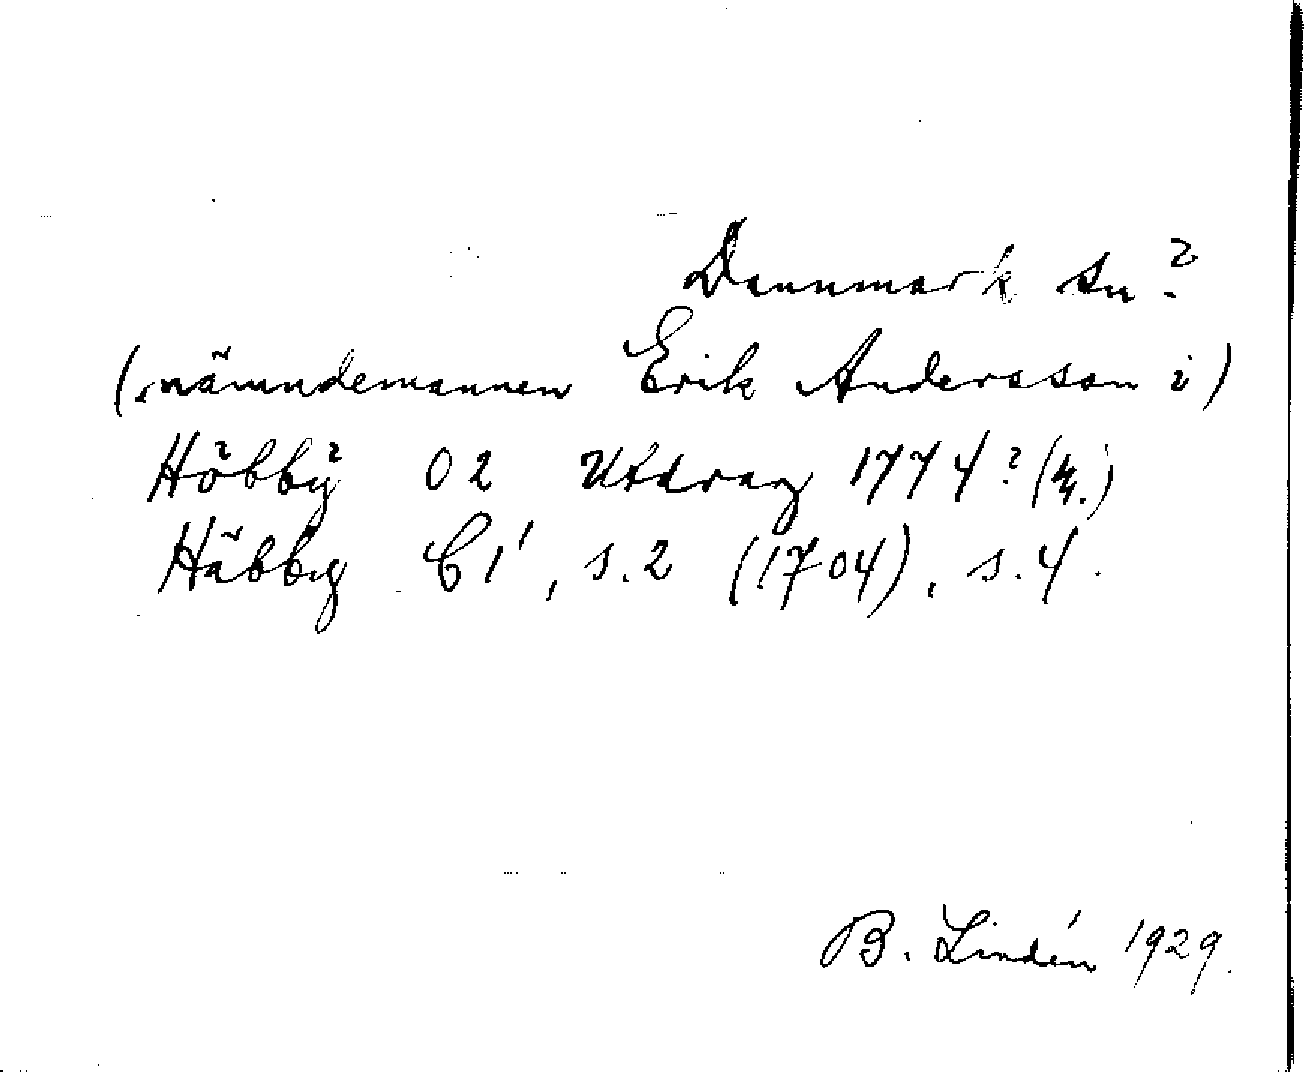 Dannmark sn?
(nämndemannen Erik Andersson i)
Höbbÿ O2 Utdrag 1774? (
Häbby C1, s.2 (1704), s.4.
B. Lindén 1929.